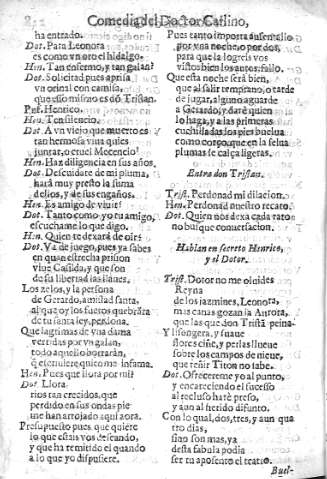 Comedia del Doctor Carlino,
ha entrado.
Dot. Para Leonora
es como vn oro el hidalgo.
Hen. Tan enfermo, y tan galan?
Dot. Solicitud pues aprisa
vn orinal con camisa,
que esso mismo es dõ Tristan.
Hen. Ten silencio.
Dot. A vn viejo que muerto es
tan hermosa vnus quies
juntar, o cruel Mecencio!
Hen. Haz diligencia en sus años.
Dot. Descuidate de mi pluma,
harà muy presto la suma
delios, y de sus engaños.
Hen. Es amigo de viuir?
Dot. Tanto como yo tu amigo,
escuchame lo que digo.
Hen. Quien te dexarà de oir?
Dot. Va de juego, pues ya sabes
en quan estrecha prision
viue Casilda, y que son
de su libertad las llaues.
Los zelos, y la persona
de Gerardo, amistad santa,
al que oy los fueros quebranta
de tu santa ley, perdona.
Que lagrimas de vna dama
vertidas por vn galan,
todo aquello borraràn,
q̃ escriuiere quien no infama.
Hen. Pues que llora por mi?
Dot. Llora.
rios tan crecidos, que
perdido en sus ondas pie
me han arrojado aqui aora.
Presupuesto pues, que quiere
lo que estais vos deseando,
y que ha remitido el quando
a lo que yo dispusiere.
Pues tanto importa ausentallo
por vna noche, o por dos,
para que la logreis vos
vistos bien los autos: fallo.
Que esta noche serà bien,
que al salir temprano, o tarde
de jugar, alguno aguarde
a Gerardo; y darè quien
lo haga, y a las primeras
cuchilladas los pies buelua
como corço, que en la selua
plumas se calça ligeras.
Entra don Tristan.
Trist. Perdonad mi dilacion.
Hen. Perdonad nuestro recato.
Dot. Quien nos dexa cada rato
no busque conuersacion.
Hablan en secreto Henrico,
y el Dotor.
Trist. Dotor no me oluides
Reyna
de los jazmines, Leonora,
mas canas gozan la Aurora,
que las que don Tristã peina.
Y lisongera, y suaue
flores ciñe, y perlas llueue
sobre los campos de nieue,
que reñir Titon no sabe.
Dot. Ofrecereme yo al punto,
y encareciendo el sucesso
al recluso harè preso,
y aun al herido difunto.
Con lo qual, dos, tres, y aun qua
tro dias,
sino son mas, ya
desta fabula podia
ser tu aposento el teatro.
Buel-